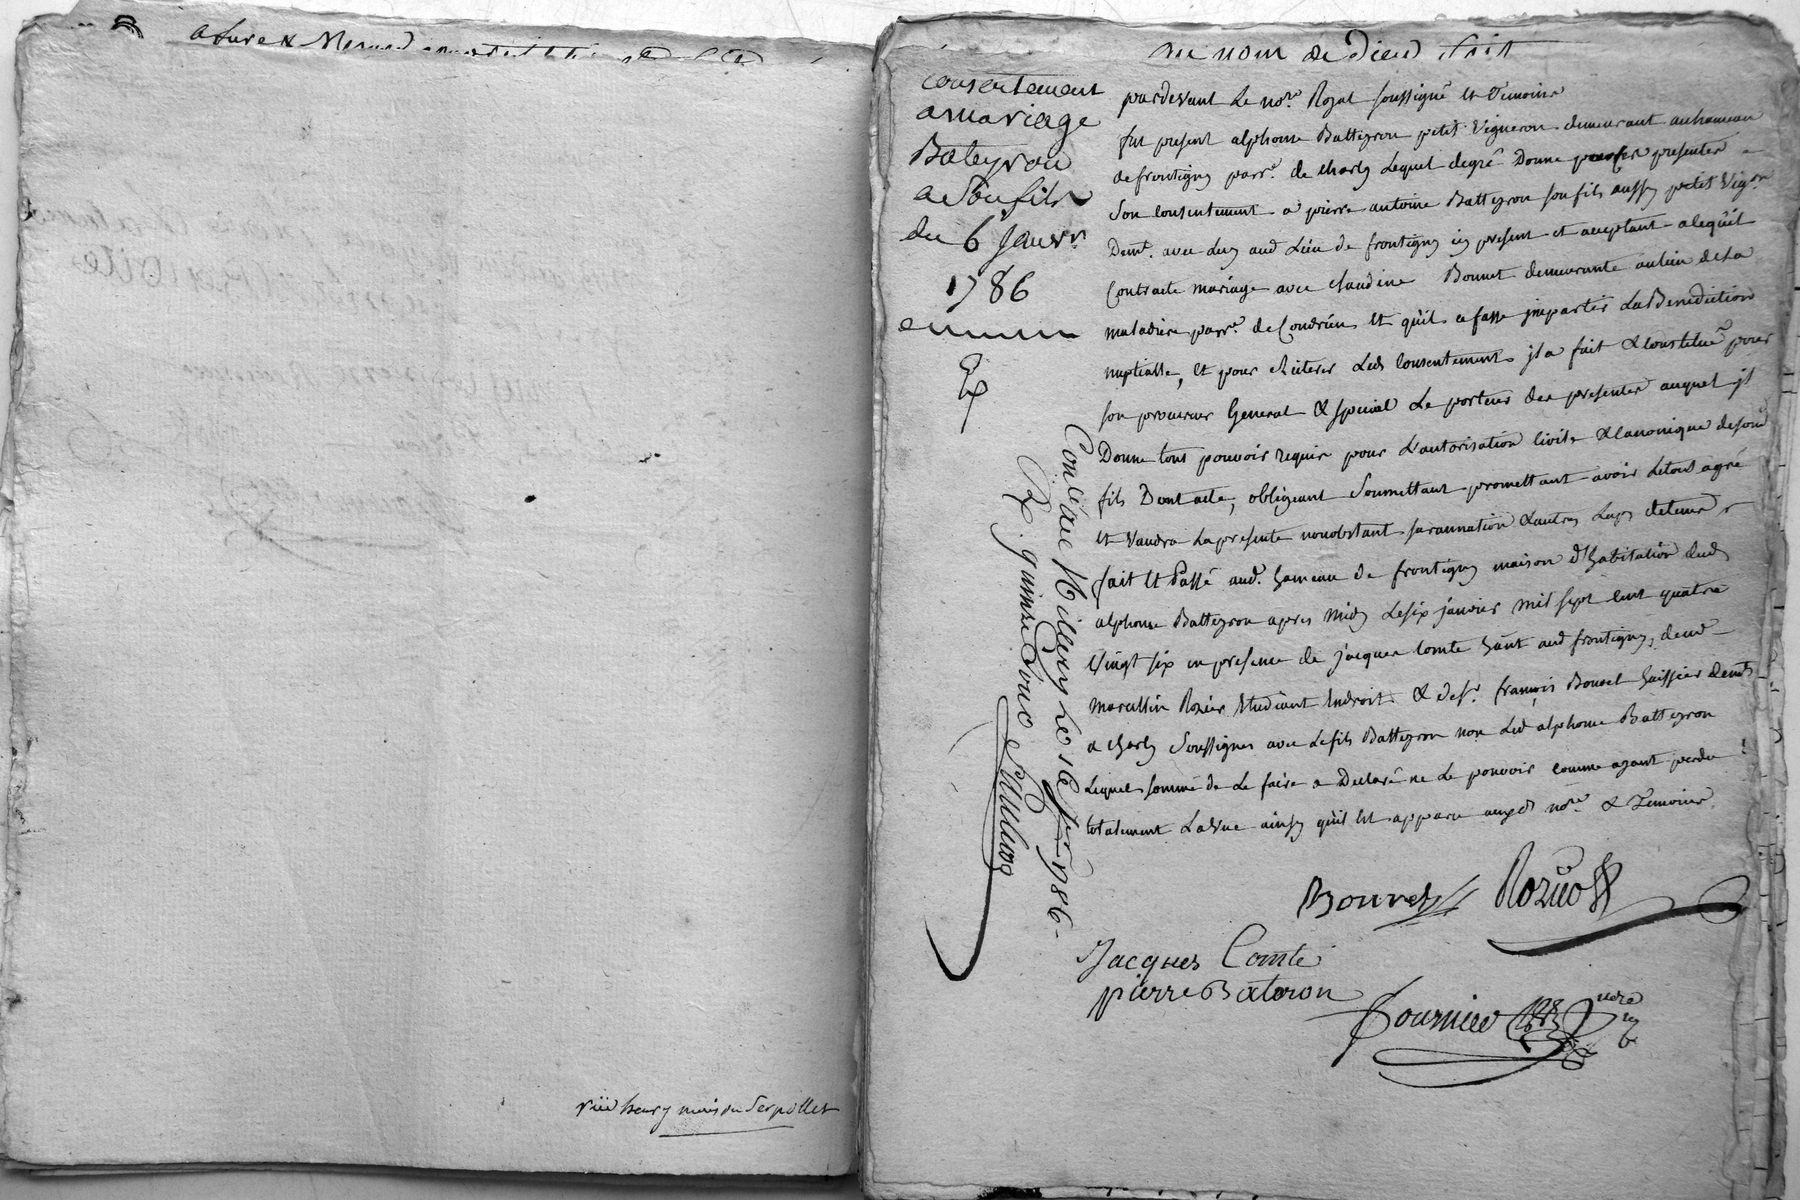 a Lure &
rue henry maison Serpollet
au nom de Dieu soit
Consentement
a mariage
Bateyron
a Son fils
du 6 Janvr
1786
pardevant Le nore Royal soussigné et Temoins
fut present alphonse Batteyron petit Vigneron demeurant au hameau
de frontigny parr.e de charly Lequel de gré Donne par ces presentes
Son consentement a pierre antoine Batteyron son fils aussy petit Vign.on
Dem.t avec Luy aud Lieu de frontigny icy present et acceptant a lequil
Contracte mariage avec claudine Bonnet demeurante au lieu de La
maladiere parr.e de Condrieu et qu'il se fasse impartir La Benediction
nuptialle, et pour reiterer Led consentement il a fait & constitué pour
son procureur General & special Le porteur des presentes auquel il
Donne tout pouvoir requis pour L'autorisation civile & canonique de sond
fils Dont acte, obligeant Soumettant promettant avoir Le tout agré
et Vaudra La presente nonobstant surannation & autres Laps de tems
fait et Passé aud. hameau de frontigny maison d'habitation dud
alphonse Batteyron apres midy Le six janvier mil sept cent quatre
Vingt six en presence de jacques Comte hânt aud frontigny, de md
marcellin Rozier Etudiant Endroit & de sr. françois Bouvet huissier demts
a charly Soussignes avec Le fils Batteyron non Led alphonse Batteyron
Lequel sommé de Le faire a Declaré ne Le pouvoir comme ayant perdu
totalement La Vue ainsy qu'il Est apparu auxds nore & Temoins
Conlé a St Le 1786
R. quinze Sous
Bouvet
Jacques Comte
pierre Bateron
Fournier